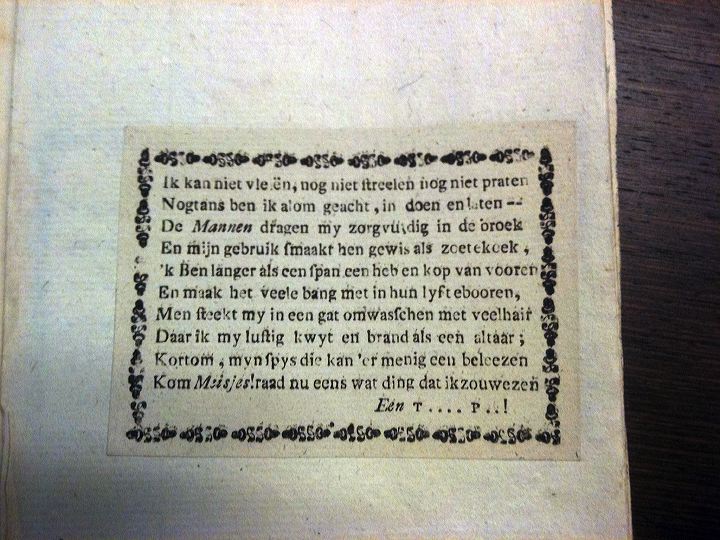 Ik kan niet vle.ën, nog niet ſtreelen nog niet praten
Nogtans ben ik alom geacht, in doen en laten --
De Mannen dragen my zorgvuldig in de broek
En mijn gebruik ſmaakt hen gewis als zoetekoek,
'k Ben langer als een ſpan een heb en kop van vooren
En maak het veele bang met in hun lyf te booren,
Men ſteekt my in een gat omwasſchen met veel hair
Daar ik my luſtig kwyt en brand als een altaar;
Kortom, myn ſpys die kan 'er menig een beleezen
Kom Meisjes! raad nu eens wat ding dat ik zou wezen
Eén T.... P..!